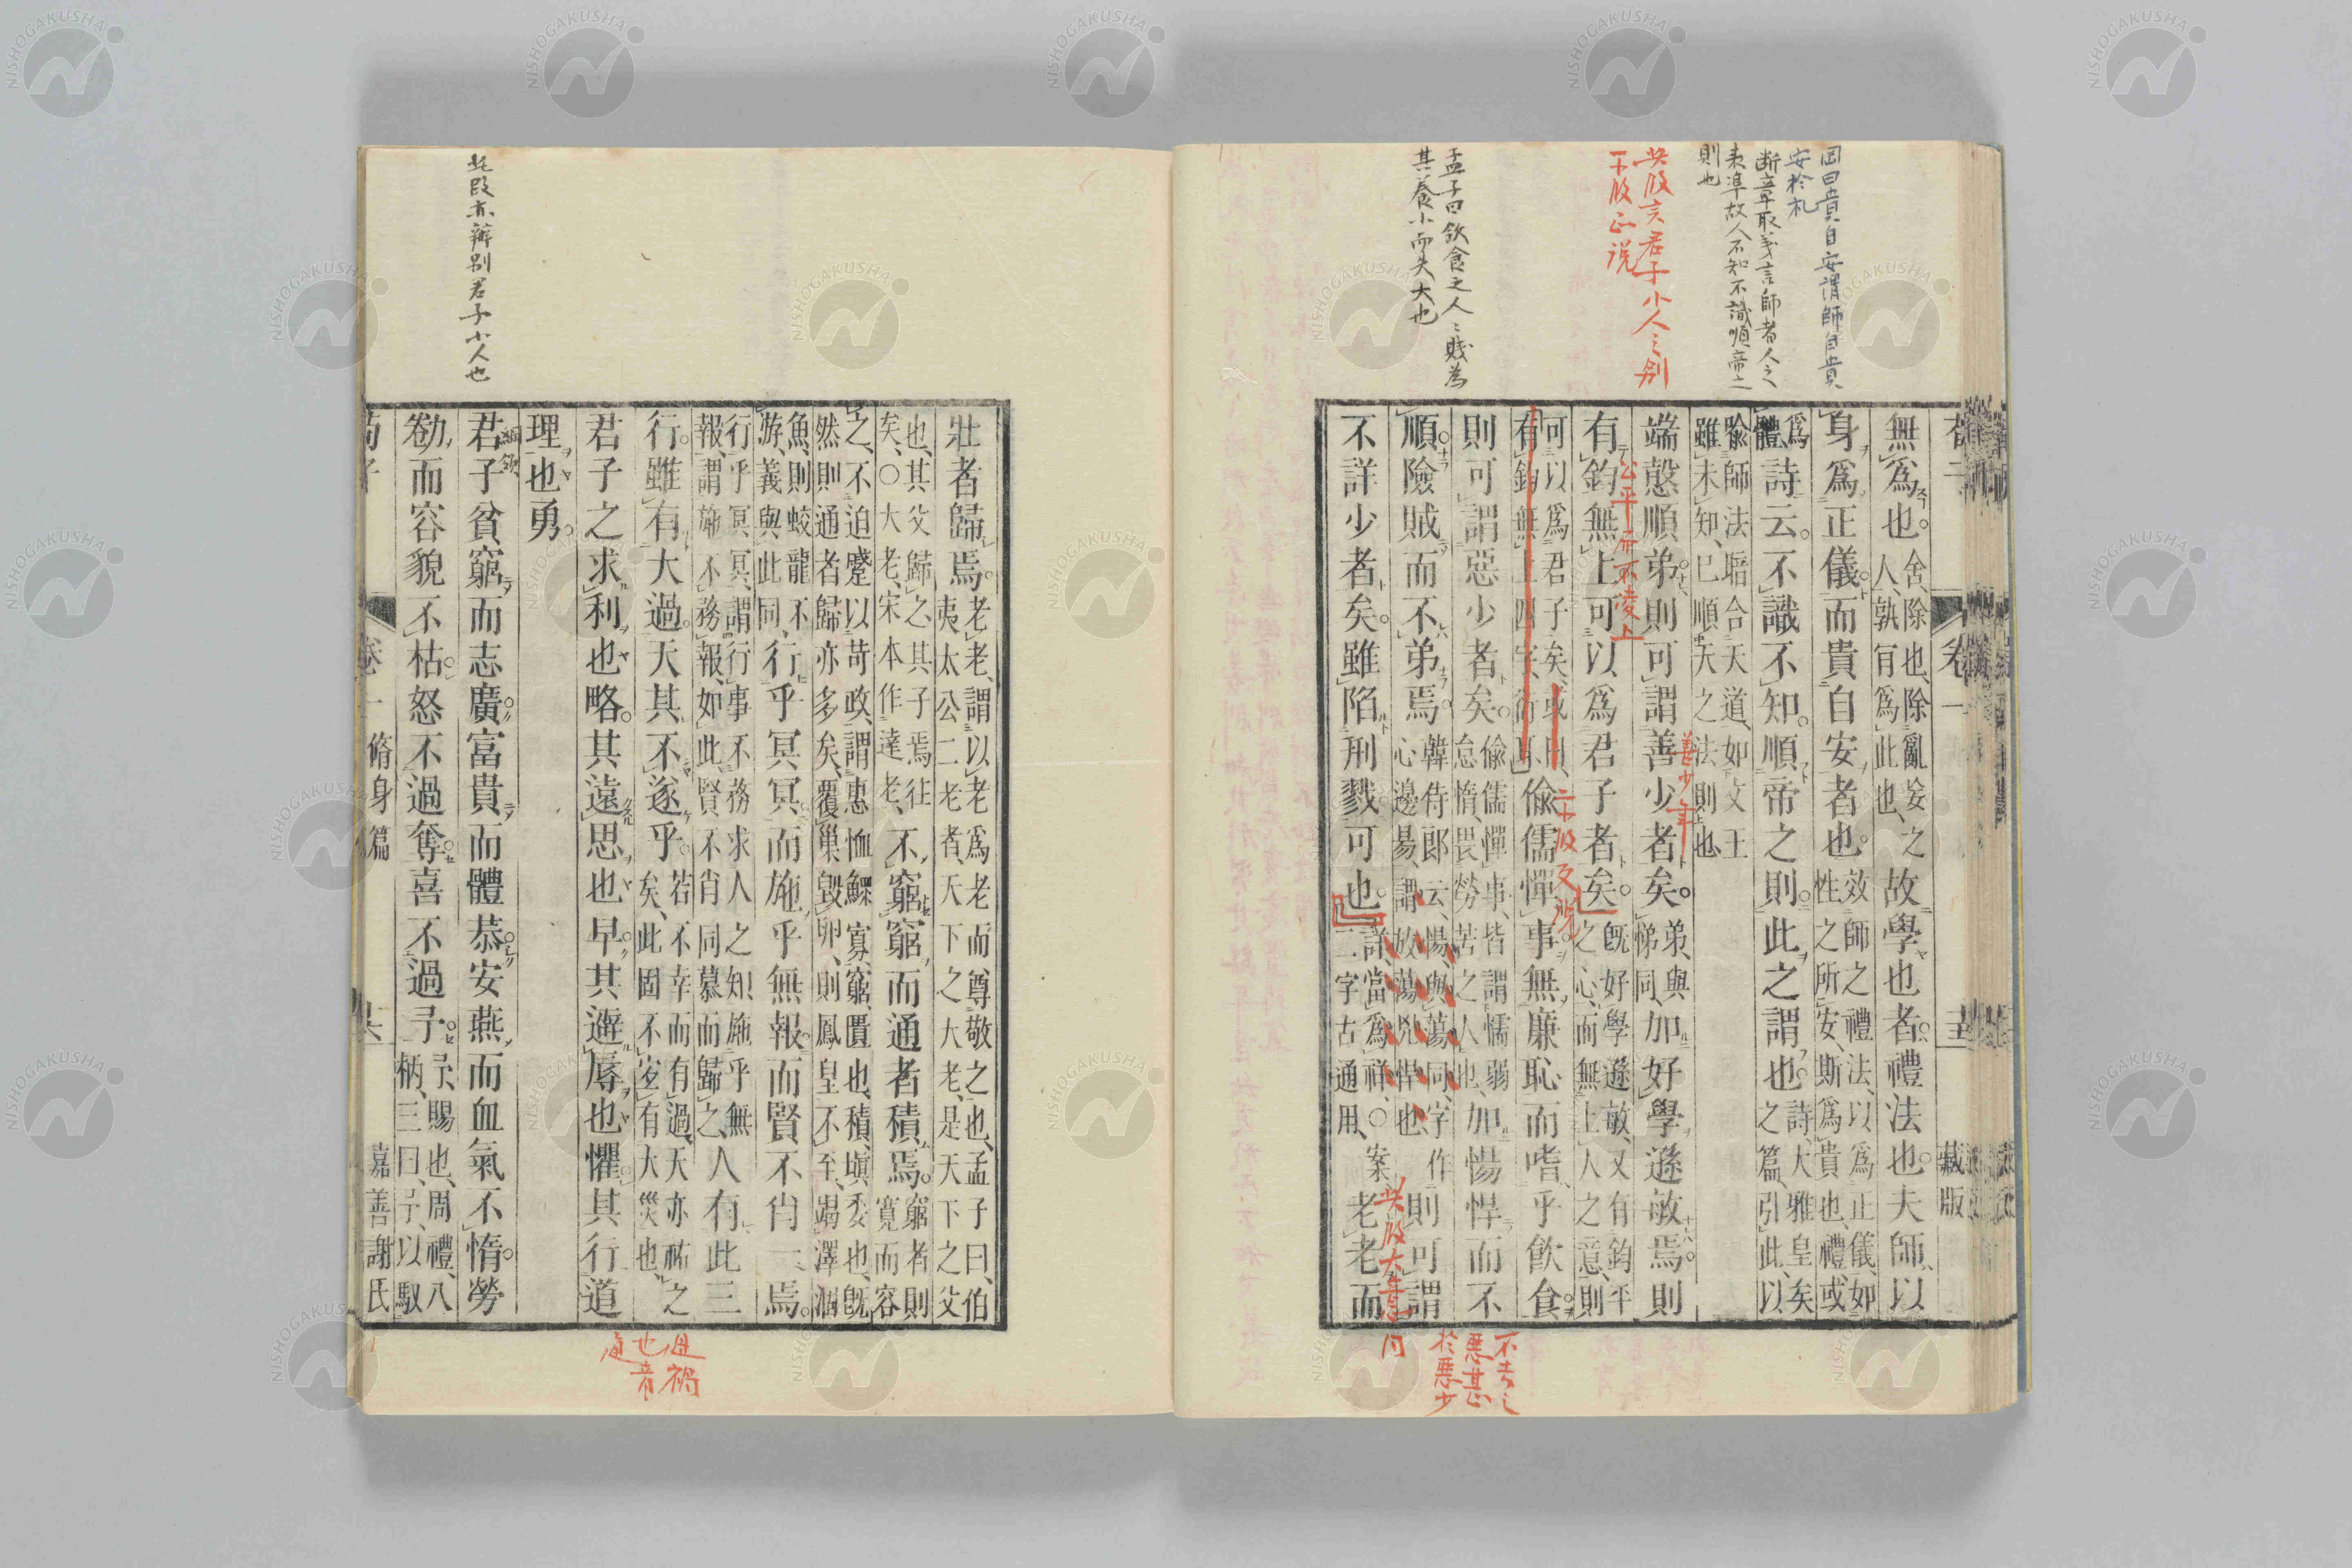 岡曰貴自安謂師自貴
安於礼
断章取義言師者人之
表準故人不知不識順帝之
則也
此段言君子小人之別
下段正説
孟子曰飲食之人人賤為
其養小而失大也
卷一
藏版
無爲也。舍、除也、除亂妄之人、孰肯爲此也、故學也者禮法也。夫師以
身爲正儀。而貴自安者也。效師之禮法、以爲正儀、如性之所安、斯爲貴也、禮、或
爲體詩云。不識不知。順帝之則。此之謂也。詩大雅皇矣之篇、引此、以
喩師法暗合天道、如文王雖未知、已順天之法則也
端慤順弟。則可謂善少者矣。弟、與悌同、加好學遜敏焉。則
善少年
有鈞無上。可以爲君子者矣。既好學遜敏、又有鈞平之心、而無上人之意、則
公平而不凌上
可以爲君子矣、或曰、有鈞無上四字、衍耳、偸儒憚事無廉恥而嗜乎飮食。
下段反説
則可謂惡少者矣。偸儒憚事、皆謂懦弱怠惰、畏勞苦之人也、加愓悍而不
順。險賊而不弟焉。韓侍郎云、愓、與蕩同、字作心邊昜、謂放蕩兇悍也則可謂
不詳少者矣。雖陷刑戮可也。詳、當爲祥、〇案二字古通用、老老而
此段大意同
不吉之
悪甚
於悪少
壯者歸焉。老老、謂以老爲老而尊敬之也、孟子曰、伯夷、太公二老者、天下之大老、是天下之父
也、其父歸之、其子焉往矣、〇大老、宋本作達老、不窮窮而通者積焉。窮者則寬而容
之、不迫蹙以苛政、謂惠恤鰥寡、窮匱也、積、塡委也、既然則通者歸亦多矣、覆巢毀卵、則鳳皇不至、竭澤涸
魚、則蛟龍不游、義與此同、行乎冥冥而施乎無報。而賢不肖一焉。
行乎冥冥、謂行事不務求人之知、施乎無報、謂施不務報、如此、賢不肖同慕而歸之、人有此三
行。雖有大過。天其不遂乎。若不幸而有過、天亦祐之矣、此固不宜有大災也、
君子之求利也略。其遠思也早。其避辱也懼。其行道
理也勇。
君子貧窮而志廣。富貴而體恭。安燕而血氣不惰。勞
勌而容貌不枯。怒不過奪。喜不過予。予、賜也、周禮、八柄、三曰、予、以馭
荀子
卷一
脩身篇
嘉善謝氏
此段亦辨別君子小人也
禍
也音